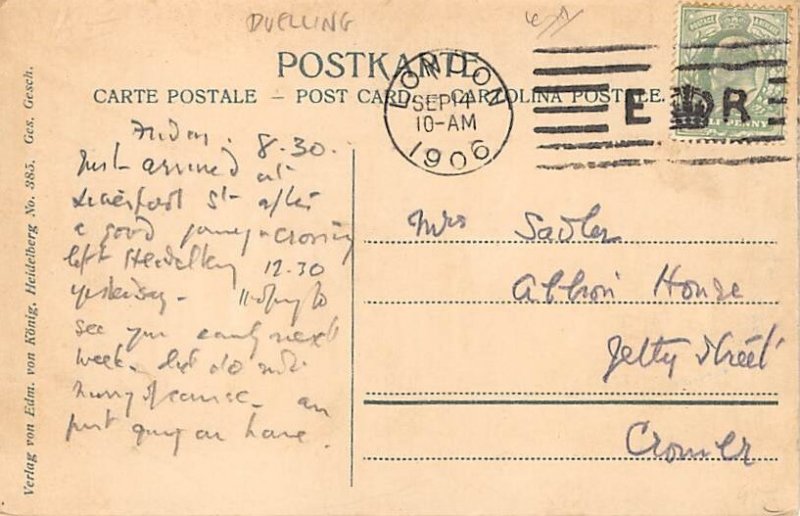 DUELLING
POSTKARTE
CARTE POSTALE – POST CARD – CARTOLINA POSTALE.
LONDON
SEP 14
10-AM
1906
E R
Friday. 8.30.
Just arrived at
Liverpool St after
a good journey & crossing
left Heidelberg 12.30
yesterday. to
see you early next
week. but do not
hurry of course. am
just going on home.
Mrs Sadler
Albion House
Jetty Street
Cromer
Verlag von Edm. von König, Heidelberg No. 385. Ges. Gesch.